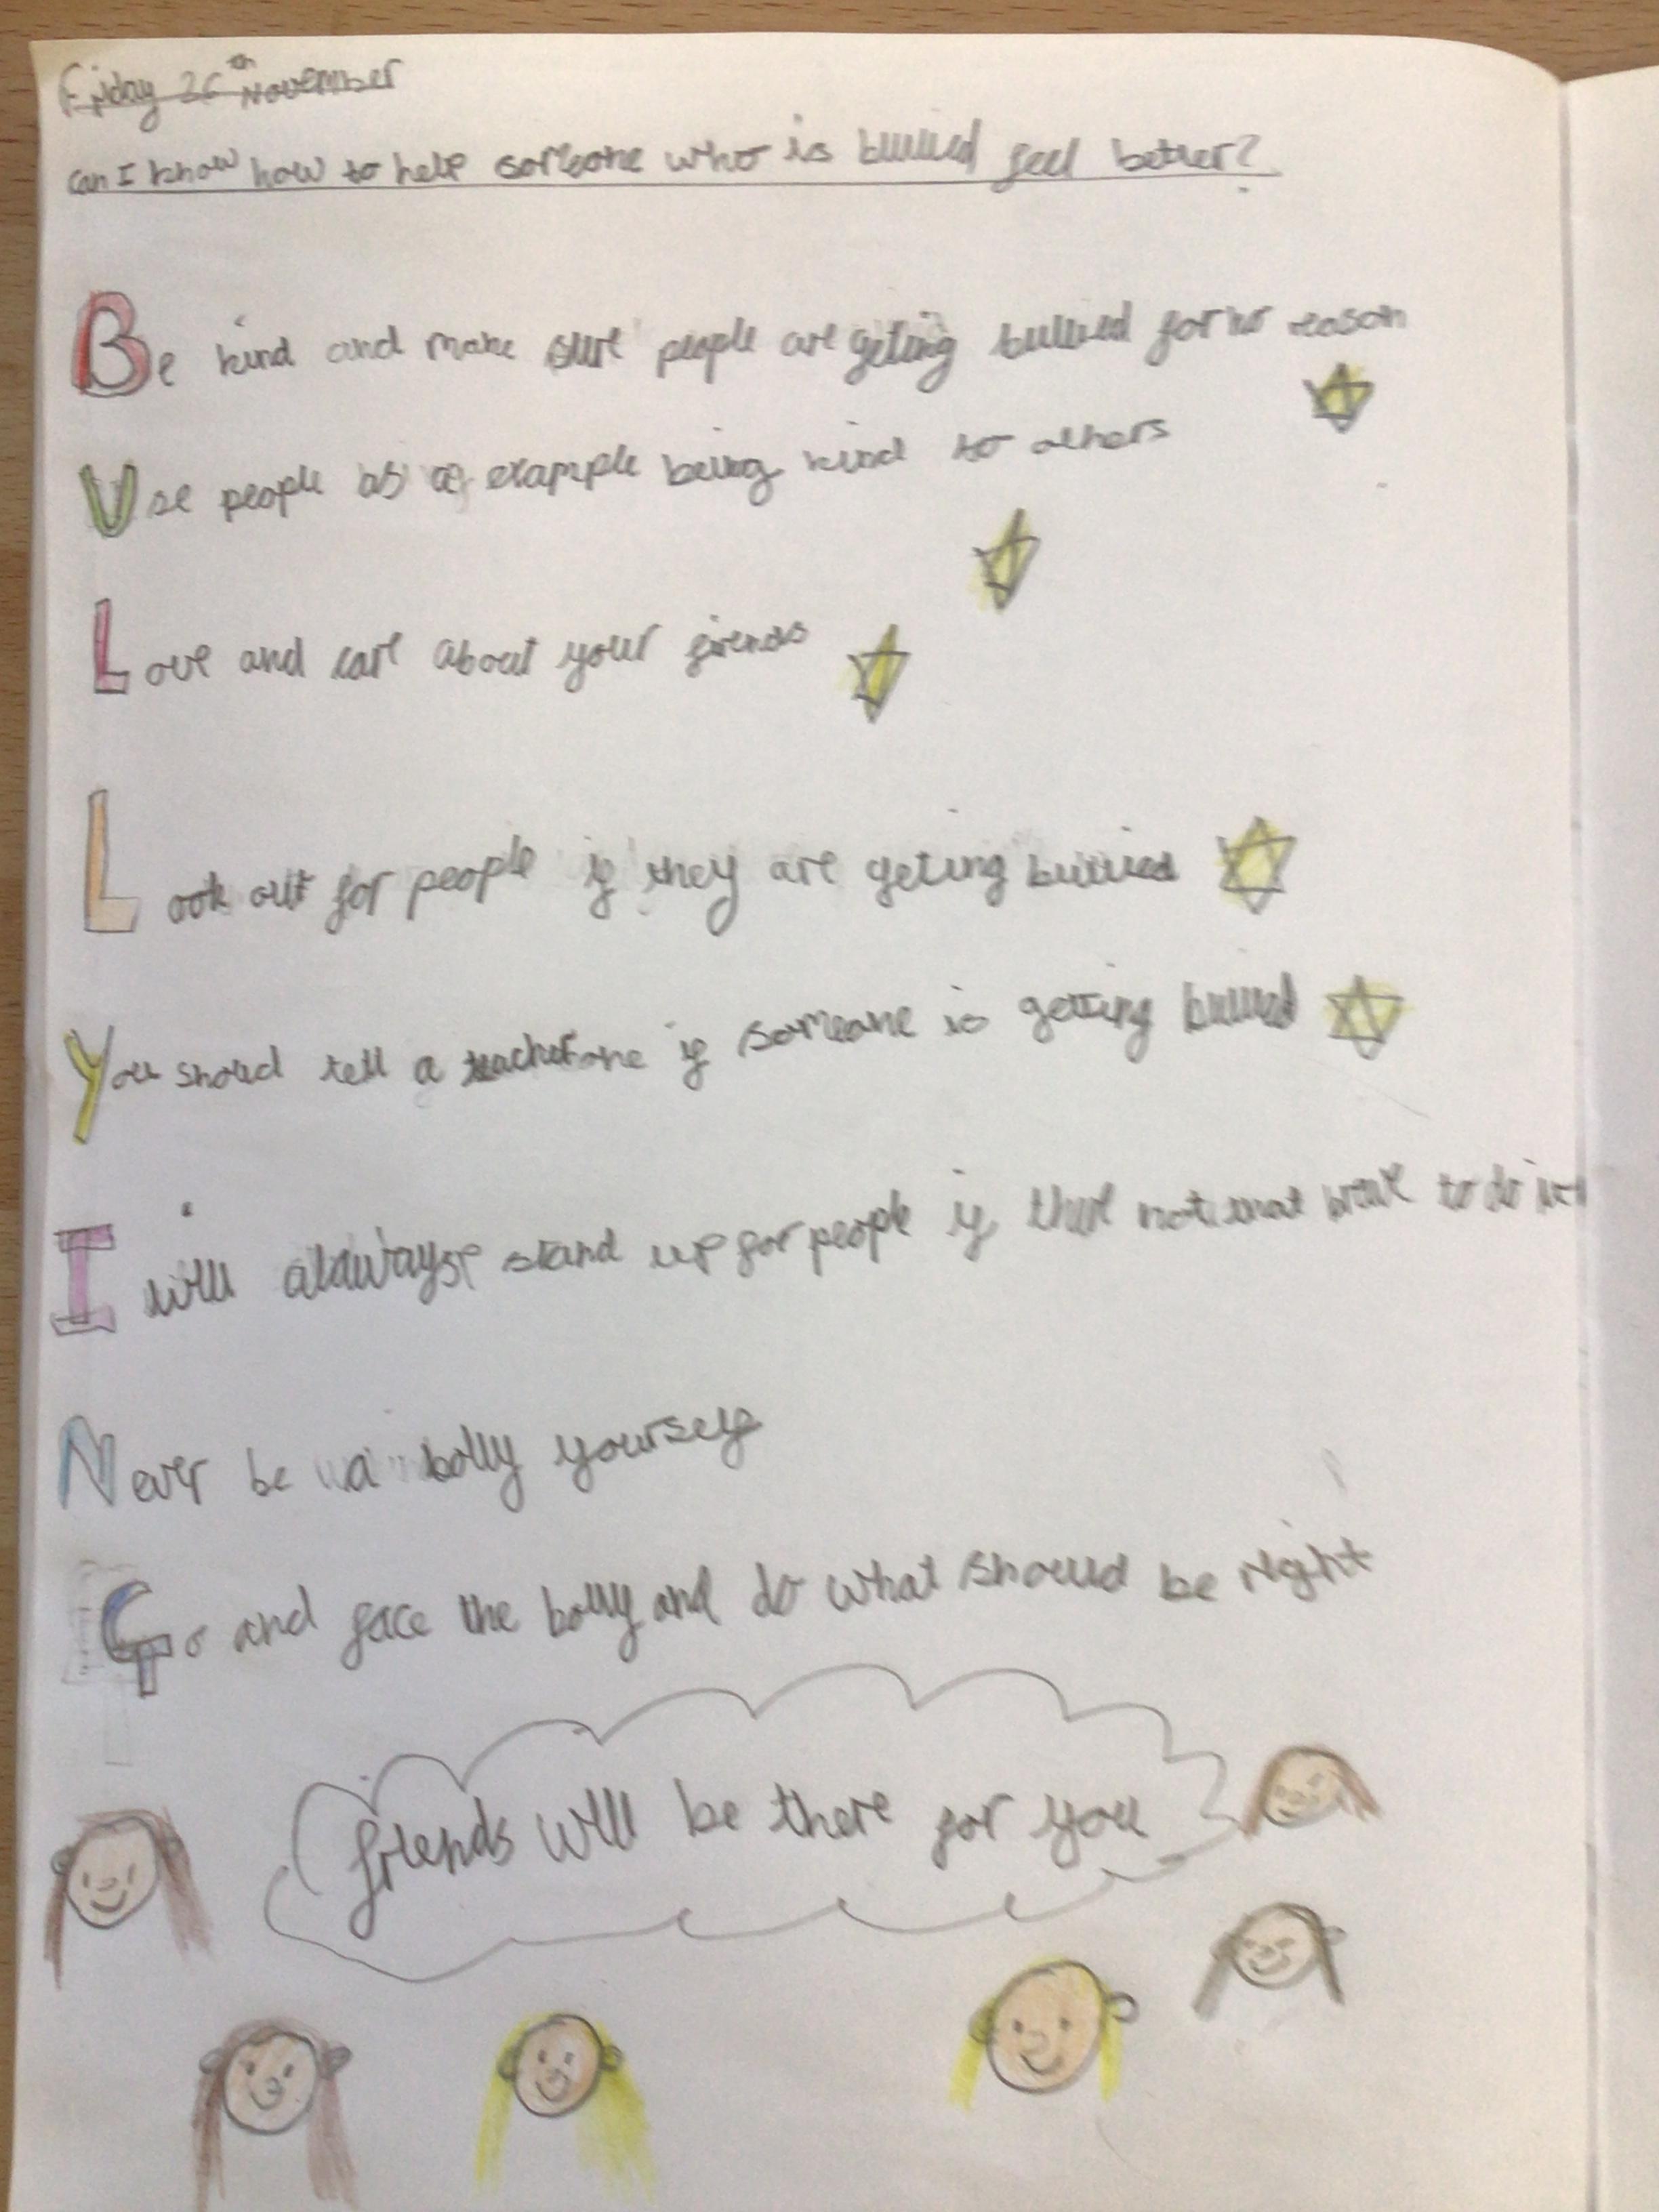 Friday 26th November
can I know how to help someone who is bullied feel better?
Be kind and make sure people are geting bullied for no reason
Use people as a example being kind to others
Love and care about your firends
Look out for people if they are geting bullied
You should tell a teacherone if someone is getting bullied
I will always stand up for people if not that brave to do it
Never be a bolly yourself
Go and face the bolly and do what should be right
friends will be there for you